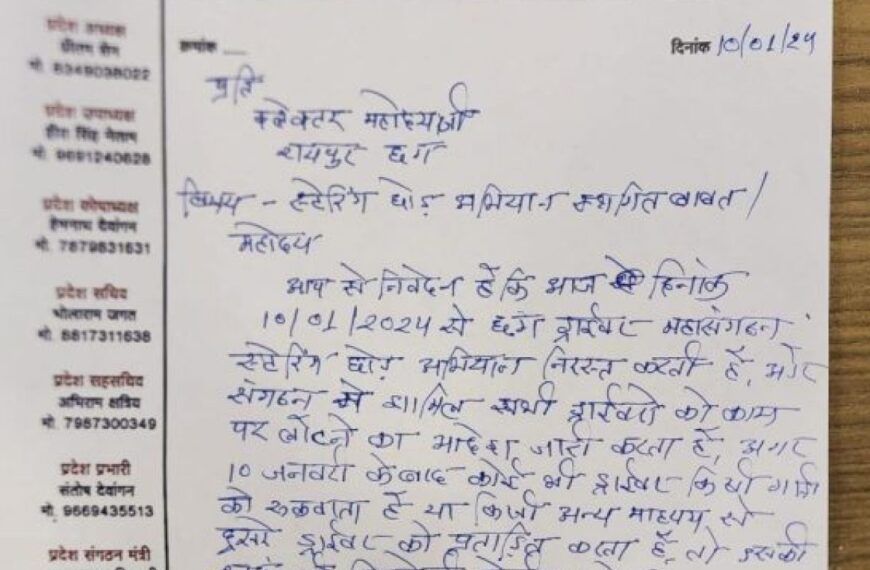 प्रदेश अध्यक्ष
प्रीतम सेन
मो. 6349038022
प्रदेश उपाध्यक्ष
हीरा सिंह नेताम
मो. 9691240628
प्रदेश कोषाध्यक्ष
हेमनाथ देवांगन
मो. 7879831631
प्रदेश सचिव
भोलाराम जगत
मो. 8817311638
प्रदेश सहसचिव
अभिराम क्षत्रिय
मो. 7987300349
प्रदेश प्रभारी
संतोष देवांगन
मो. 9669435513
प्रदेश संगठन मंत्री
क्रमांक
दिनांक 10/01/24
प्रति
कलेक्टर महोदय जी
रायपुर छग
विषय - स्टेरिंग छोड़ अभियान स्थगित बाबत।
महोदय
आप से निवेदन हैं कि आज दिनांक
10/01/2024 से छग ड्राईवर महासंगठन
स्टेरिंग छोड़ अभियान निरस्त करती हैं, और
संगठन में शामिल सभी ड्राईवरो को काम
पर लौटने का आदेश जारी करता हैं, अगर
10 जनवरी के बाद कोई भी ड्राईवर किसी गाड़ी
को रुकवाता हैं या किसी अन्य माध्यम से
दुसरे ड्राईवर को प्रताड़ित करता हैं, तो उसकी